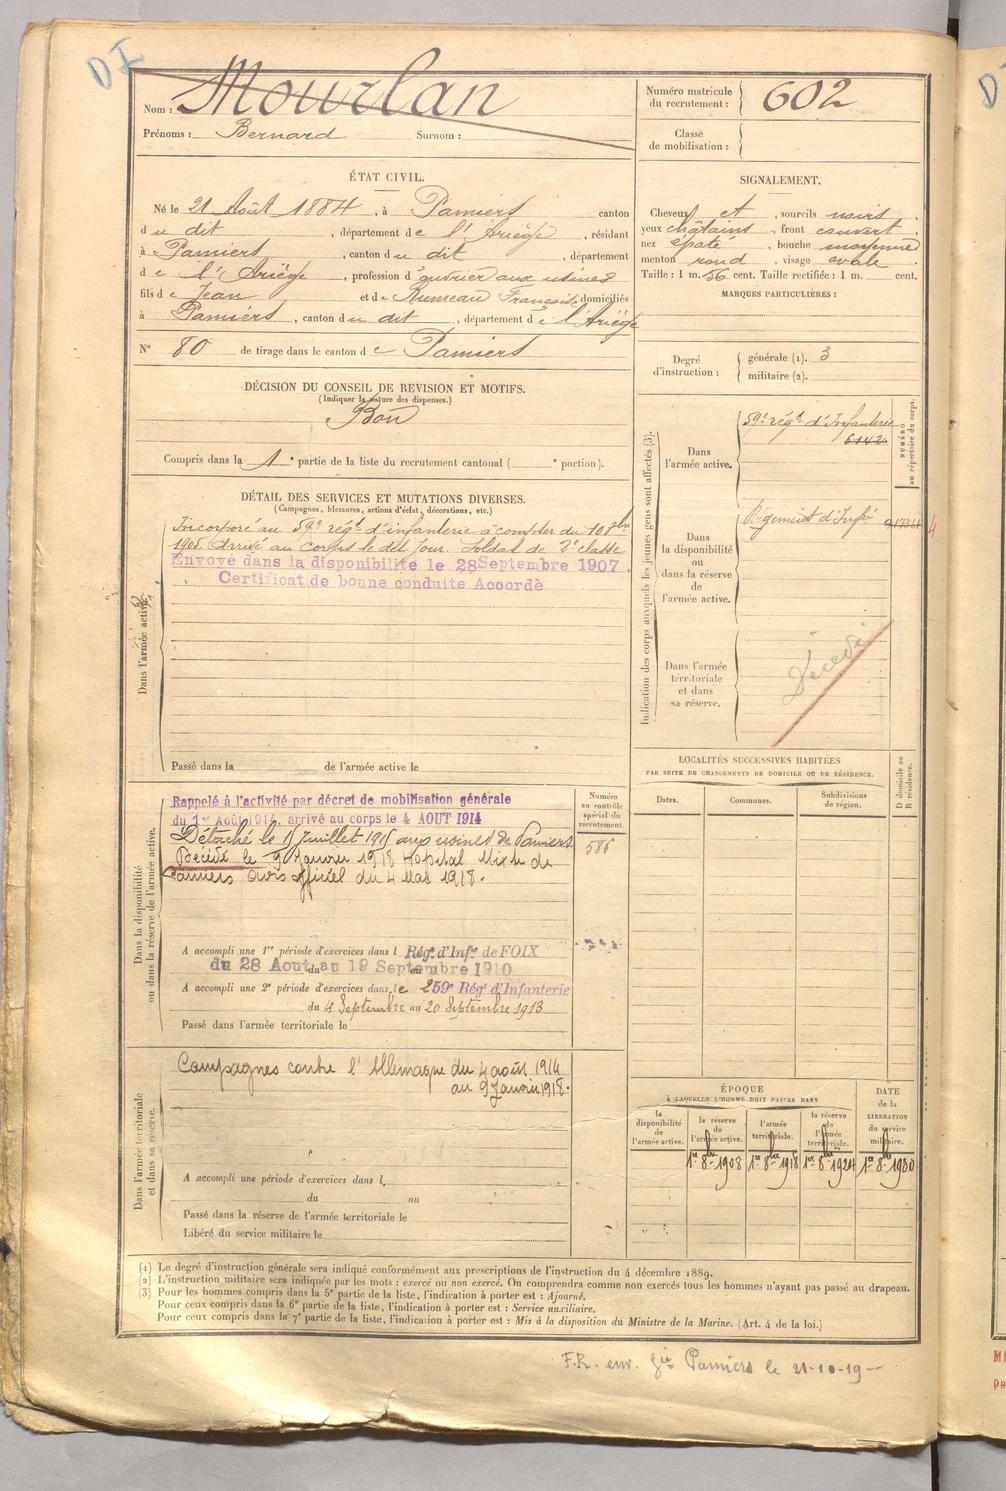 DI
Nom : Mourlan
Prénoms : Bernard Surnom :
Numéro matricule
du recrutement : 602
Classe
de mobilisation :
ÉTAT CIVIL.
Né le 21 Août 1884, à Pamiers canton
du dit, département de l'Ariège, résidant
à Pamiers, canton du dit, département
de l'Ariège, profession d'ouvrier aux usines
fils de Jean et de Rumeau Françoise domiciliés
à Pamiers, canton du dit, département de l'Ariège
N° 80 de tirage dans le canton de Pamiers
SIGNALEMENT.
Cheveux et, sourcils noirs,
yeux châtains, front couvert,
nez épaté, bouche moyenne
menton rond, visage ovale.
Taille : 1 m. 56 cent. Taille rectifiée : 1 m. cent.
MARQUES PARTICULIÈRES :
Degré
d'instruction :
générale (1). 3
militaire (2).
DÉCISION DU CONSEIL DE REVISION ET MOTIFS.
(Indiquer la nature des dispenses.)
Bon
Compris dans la 1e partie de la liste du recrutement cantonal ( e portion).
DÉTAIL DES SERVICES ET MUTATIONS DIVERSES.
(Campagnes, blessures, actions d'éclat, décorations, etc.)
Dans l'armée active.
Incorporé au 59e régt d'infanterie à compter du 10 8bre
1905. Arrivé au corps le dit jour. Soldat de 2e classe
Envoyé dans la disponibilité le 28 Septembre 1907.
Certificat de bonne conduite Accordé
Passé dans la de l'armée active le
Indication des corps auxquels les jeunes gens sont affectés (3).
NUMÉRO
au répertoire du corps.
Dans
l'armée active.
59e régt d'Infanterie
6142
Dans
la disponibilité
ou
dans la réserve
de
l'armée active.
Régiment d'Infie
Dans l'armée
territoriale
et dans
sa réserve.
Décédé
Dans la disponibilité
ou dans la réserve de l'armée active.
Rappelé à l'activité par décret de mobilisation générale
du 1er Août 1914, arrivé au corps le 4 AOUT 1914
Détaché le 15 Juillet 1915 aux usines de Pamiers
Décédé le 9 Janvier 1918 Hopital Mixte de
Pamiers avis officiel du 4 Mai 1918.
Numéro
au contrôle
spécial du
recrutement.
586
A accompli une 1re période d'exercices dans l Rég. d'Infie de FOIX
du 28 Aout au 19 Septembre 1910
A accompli une 2e période d'exercices dans le 259e Régt d'Infanterie
du 4 Septembre au 20 Septembre 1913
Passé dans l'armée territoriale le
LOCALITÉS SUCCESSIVES HABITÉES
PAR SUITE DE CHANGEMENTS DE DOMICILE OU DE RÉSIDENCE.
Dates. Communes. Subdivisions
de région.
D domicile ou
R résidence.
Dans l'armée territoriale
et dans sa réserve.
Campagnes contre l'Allemagne du 4 août 1914
au 9 Janvier 1918.
A accompli une période d'exercices dans l
du au
Passé dans la réserve de l'armée territoriale le
Libéré du service militaire le
ÉPOQUE
À LAQUELLE L'HOMME DOIT PASSER DANS
DATE
de la
LIBERATION
du service
militaire.
la
disponibilité
de
l'armée active.
la réserve
de
l'armée active.
l'armée
territoriale.
la réserve
de
l'armée
territoriale.
1er 8bre 1908 1er 8bre 1918 1er 8bre 1924 1er 8bre 1930
(1) Le degré d'instruction générale sera indiqué conformément aux prescriptions de l'instruction du 4 décembre 1889.
(2) L'instruction militaire sera indiquée par les mots : exercé ou non exercé. On comprendra comme non exercés tous les hommes n'ayant pas passé au drapeau.
(3) Pour les hommes compris dans la 5e partie de la liste, l'indication à porter est : Ajourné.
Pour ceux compris dans la 6e partie de la liste, l'indication à porter est : Service auxiliaire.
Pour ceux compris dans la 7e partie de la liste, l'indication à porter est : Mis à la disposition du Ministre de la Marine. (Art. 4 de la loi.)
F.R. env. Gie Pamiers le 21-10-19